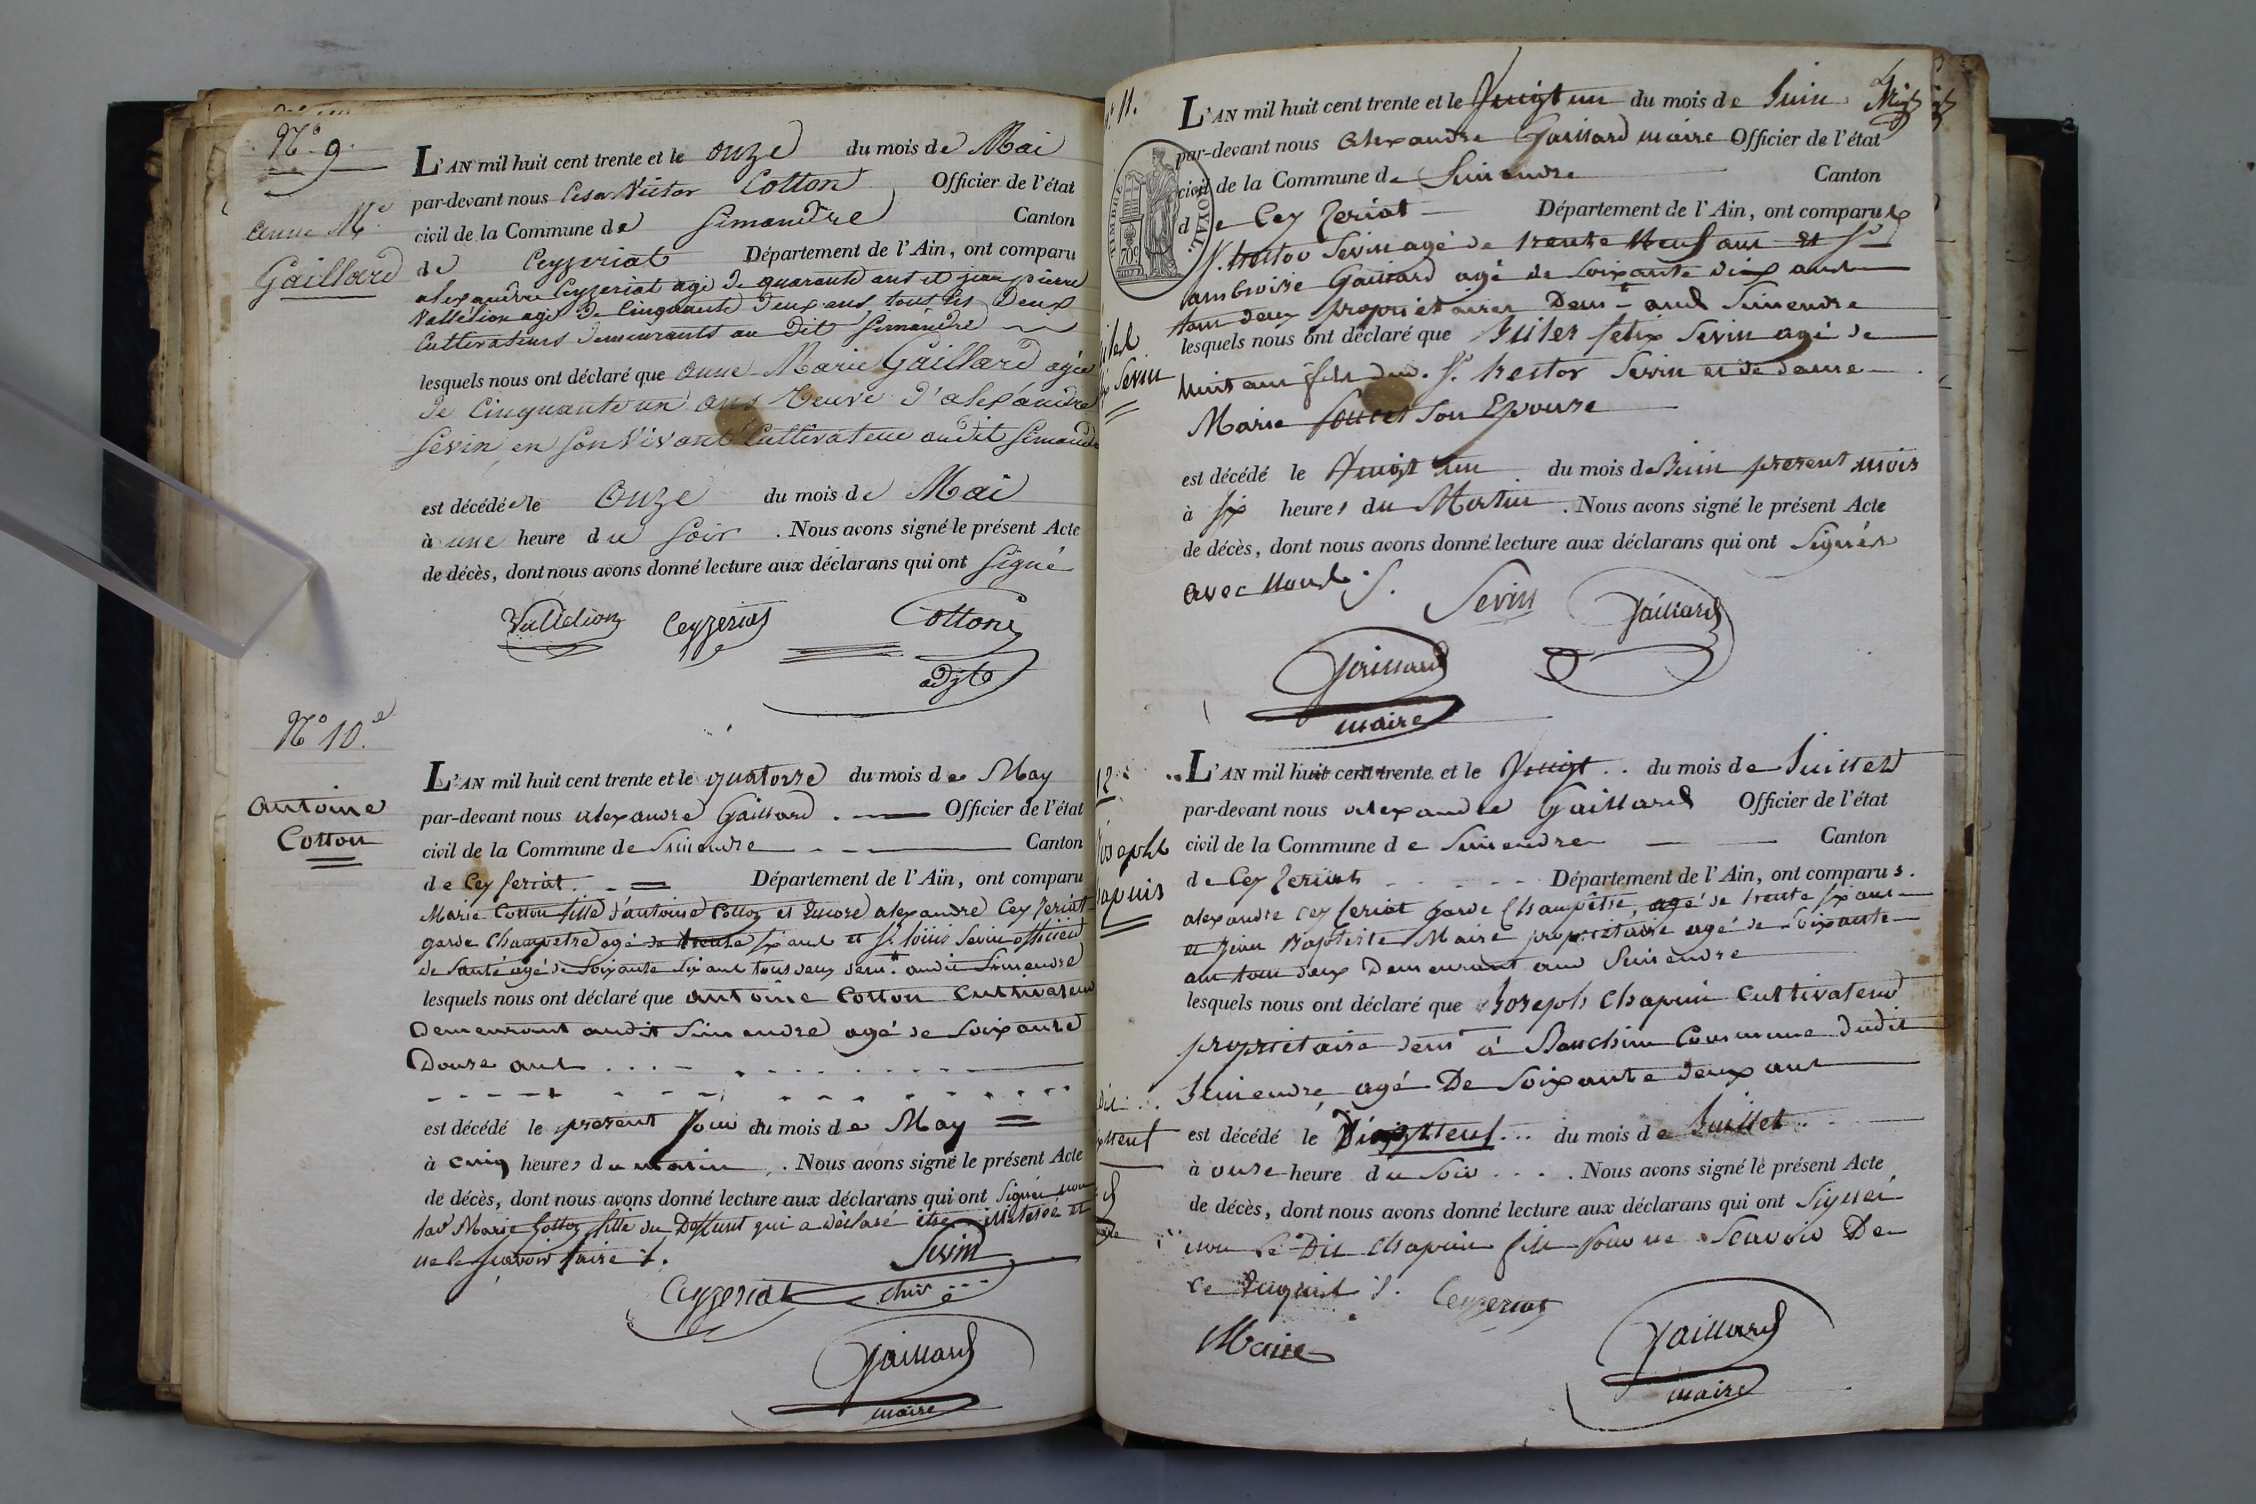 N.º 9.
Anne M.ie
Gaillard
L'AN mil huit cent trente et le onze du mois de Mai
par-devant nous Cesar Victor Cotton Officier de l'état
civil de la Commune de Simandre Canton
de Ceyzeriat Département de l'Ain, ont comparu
alexandre Ceyzeriat agé de quarante ans et jean pierre
Valletion agé de Cinquante deux ans tout les Deux
Cultivateurs demeurants au dit Simandre
lesquels nous ont déclaré que anne Marie Gaillard agée
de Cinquante un ans Veuve d'alexandre
Sevin en son vivant Cultivateur audit Simandre
est décédée le Onze du mois de Mai
à une heure du soir . Nous avons signé le présent Acte
de décès, dont nous avons donné lecture aux déclarans qui ont signé
Valletion Ceyzeriat Cotton
adjt
N.º 10.e
Antoine
Cotton
L'AN mil huit cent trente et le quatorze du mois de May
par-devant nous alexandre Gaillard . Officier de l'état
civil de la Commune de Simandre Canton
de Ceyzeriat. Département de l'Ain, ont comparu
Marie Cotton fille d'antoine Cotton et Encore alexandre Ceyzeriat
garde Champetre agé de trente six ans et Sr. loüis Sevin officier
de Santé agé de Soixante Six ans tous deux demt. audit Simandre
lesquels nous ont déclaré que antoine Cotton Cultivateur
Demeurant audit Simandre agé de Soixante
Douze ans
est décédé le present Jour du mois de May
à cinq heures du matin . Nous avons signé le présent Acte
de décès, dont nous avons donné lecture aux déclarans qui ont Signés non
Marie Cotton fille du Deffunt qui a déclaré etre illiterée et
ne le sçavoir faire
Sevin
Ceyzeriat chir
Gaillard
maire
º 11.
Sevin
L'AN mil huit cent trente et le Vingt un du mois de Juin
par-devant nous alexandre Gaillard maire Officier de l'état
civil de la Commune de Simandre Canton
de Ceyzeriat Département de l'Ain, ont comparus
Sr. hector Sevin agé de trente Neuf ans et Sr.
ambroise Gaillard agé de Soixante dix ans
tous deux proprietaires Demt. aud Simandre
lesquels nous ont déclaré que Jules felix Sevin agé de
huit ans fils dud. Sr. hector Sevin et de dame
Marie son Epouse
est décédé le Vingt un du mois de Juin present mois
à six heures du Matin . Nous avons signé le présent Acte
de décès, dont nous avons donné lecture aux déclarans qui ont Signés
avec Nous
Sevin Gaillard
Gaillard
maire
TIMBRE ROYAL.
70c
12
Joseph
Chapuis
L'AN mil huit cent trente et le Vingt du mois de Juillet
par-devant nous alexandre Gaillard Officier de l'état
civil de la Commune de Simandre Canton
de Ceyzeriat Département de l'Ain, ont comparus.
alexandre Ceyzeriat garde Champêtre, agé de trente six ans
et Jean Baptiste Maire proprietaire agé de Soixante
ans tous deux Demeurant aud Simandre
lesquels nous ont déclaré que Joseph Chapuis Cultivateur
proprietaire demt à Banchin Commune dudit
Simandre, agé De Soixante deux ans
est décédé le Dixneuf du mois de Juillet
à onze heure du Soir . Nous avons signé le présent Acte
de décès, dont nous avons donné lecture aux déclarans qui ont Signé
non Le Dit Chapuis fils pour ne Scavoir De
ce Requis
Ceyzeriat
Maire
Gaillard
maire